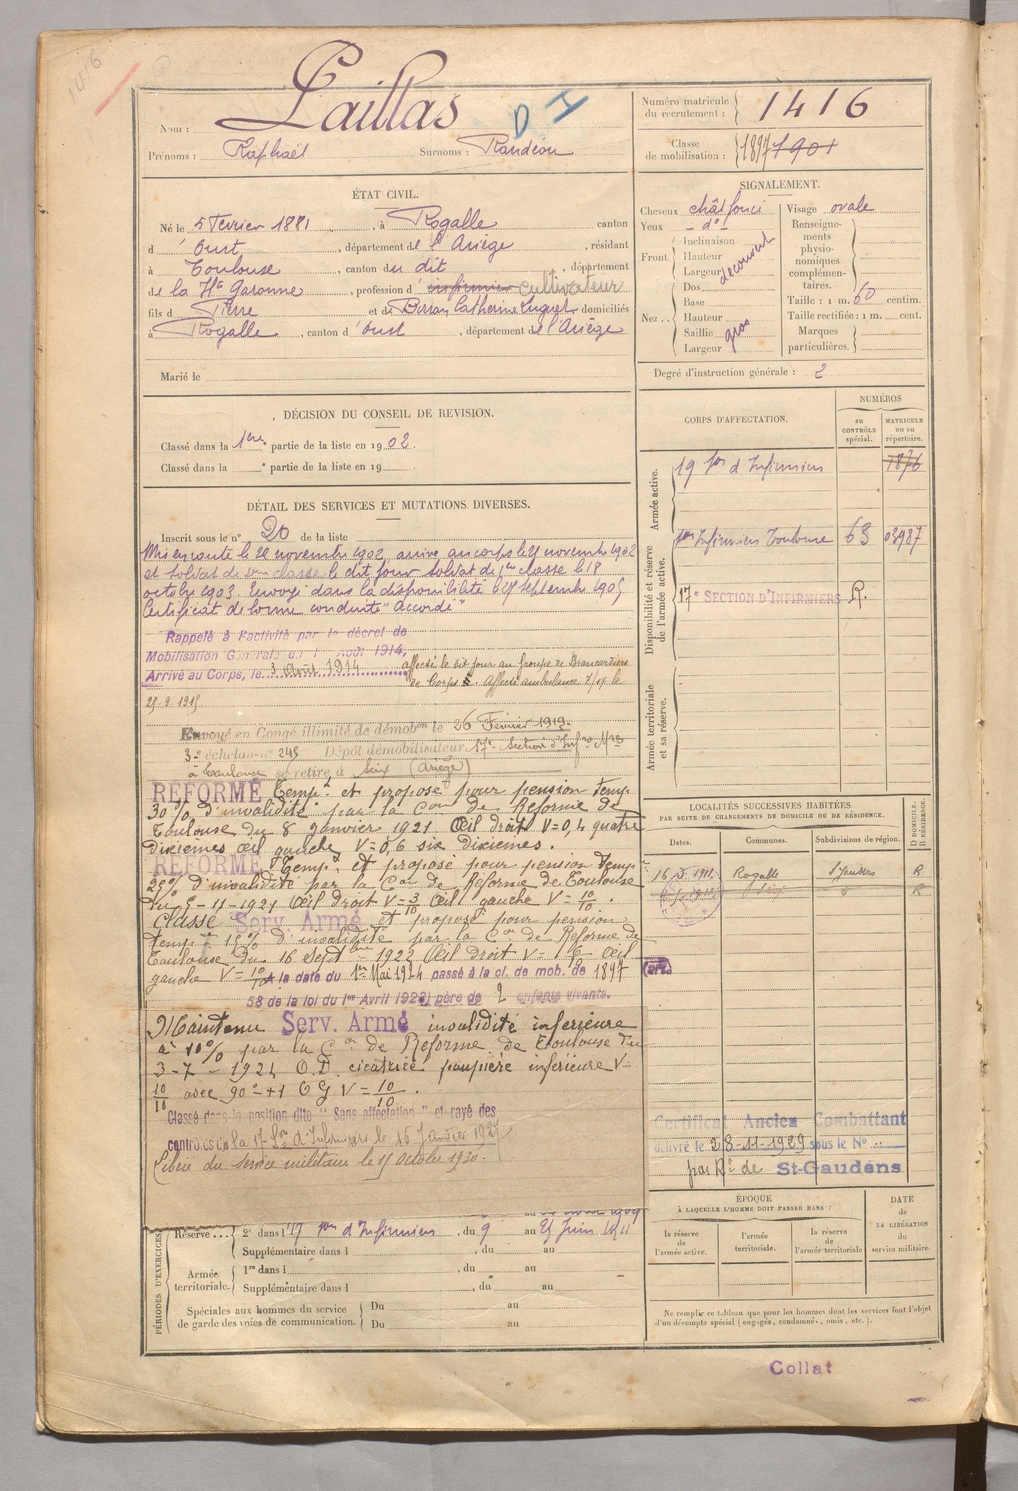 1416
Nom : Laillas
D I
Prénoms : Raphaël Surnoms : Randéou
Numéro matricule du recrutement : 1416
Classe de mobilisation : 1897 1901
ÉTAT CIVIL.
Né le 5 Fevrier 1881, à Rogalle canton
d'Oust, département de l'Ariège, résidant
à Toulouse, canton du dit, département
de la Hte Garonne, profession d'infirmier cultivateur
fils d Pierre et de Catherine domiciliés
à Rogalle, canton d'Oust, département de l'Ariège
Marié le
SIGNALEMENT.
Cheveux chât foncé
Yeux do
Front. Inclinaison
Hauteur
Largeur découvert
Nez.. Dos
Base
Hauteur
Saillie gros
Largeur
Visage ovale
Renseignements physionomiques complémentaires.
Taille : 1 m. 60 centim.
Taille rectifiée : 1 m. cent.
Marques particulières.
Degré d'instruction générale : 2
DÉCISION DU CONSEIL DE REVISION.
Classé dans la 1ère partie de la liste en 1902.
Classé dans la e partie de la liste en 19
CORPS D'AFFECTATION.
NUMÉROS
au CONTRÔLE spécial.
MATRICULE ou au répertoire.
Armée active.
19 Son d'Infirmiers 1876
Disponibilité et réserve de l'armée active.
Son Infirmiers Toulouse 63 03987
17e SECTION D'INFIRMIERS R.
Armée territoriale et sa réserve.
DÉTAIL DES SERVICES ET MUTATIONS DIVERSES.
Inscrit sous le n° 20 de la liste
Mis en route le 21 novembre 1902, arrivé au corps le 21 novembre 1902
et soldat de 2me classe le dit jour soldat de 1ère classe le 18
octobre 1903. Envoyé dans la disponibilité le septembre 1905
Certificat de bonne conduite "Accordé"
Rappelé à l'activité par le décret de
Mobilisation Générale du 1 Août 1914,
Arrivé au Corps, le 3 Août 1914 affecté le dit jour au groupe de Brancardiers
de Corps. Affecté ambulance le
25-9-1915
Envoyé en Congé illimité de démobon le 26 Février 1919.
3e échelon n° 245 Dépôt démobilisateur 17e Section d'Infrs Mres
à Toulouse se retire à Seix (Ariège)
REFORMÉ Tempt et proposé pour pension temp
30 % d'invalidité par la Con de Réforme de
Toulouse du 8 Janvier 1921 Œil droit V=0,4 quatre
dixièmes œil gauche V=0,6 six dixièmes.
REFORMÉ Tempt et proposé pour pension tempre
25% d'invalidité par la Con de Réforme de Toulouse
du 5-11-1921 Œil droit V= 3/10 Œil gauche V= 10/10.
Classé Serv. Armé et proposé pour pension
tempre 15% d'invalidité par la Con de Réforme de
Toulouse du 16 Septbre 1922 Œil droit V= Œil
gauche V= 10/10 A la date du 1er Mai 1924 passé à la cl. de mob. de 1897
58 de la loi du 1er Avril 1923, père de 2 enfants vivants.
Maintenu Serv. Armé invalidité inférieure
à 10% par la Con de Réforme de Toulouse du
3-7-1924 O.D. cicatrice paupière inférieure V=
10/10 avec 90°-+1 O G V= 10/10.
Classé dans la position dite "Sans affectation" et rayé des
contrôles de la 17 Son d'Infirmiers le 16 Janvier 1927
Libéré du service militaire le 15 Octobre 1930.
LOCALITÉS SUCCESSIVES HABITÉES
PAR SUITE DE CHANGEMENTS DE DOMICILE OU DE RÉSIDENCE.
Dates. Communes. Subdivisions de région. D DOMICILE. R RÉSIDENCE.
Rogalle St Gaudens R
R
Certificat Ancien Combattant
délivré le 28-11-1929 sous le N°
par Rt de St-Gaudens
PÉRIODES D'EXERCICES
Réserve... 2e dans l 17 Son d'Infirmiers, du 9 au 25 Juin 1911
Supplémentaire dans l, du au
Armée territoriale. 1re dans l, du au
Supplémentaire dans l, du au
Spéciales aux hommes du service de garde des voies de communication. Du au
Du au
ÉPOQUE
À LAQUELLE L'HOMME DOIT PASSER DANS :
la réserve de l'armée active.
l'armée territoriale.
la réserve de l'armée territoriale
DATE DE LA LIBÉRATION du service militaire.
Ne remplir ce tableau que pour les hommes dont les services font l'objet
d'un décompte spécial (engagés, condamnés, omis, etc.).
Collat